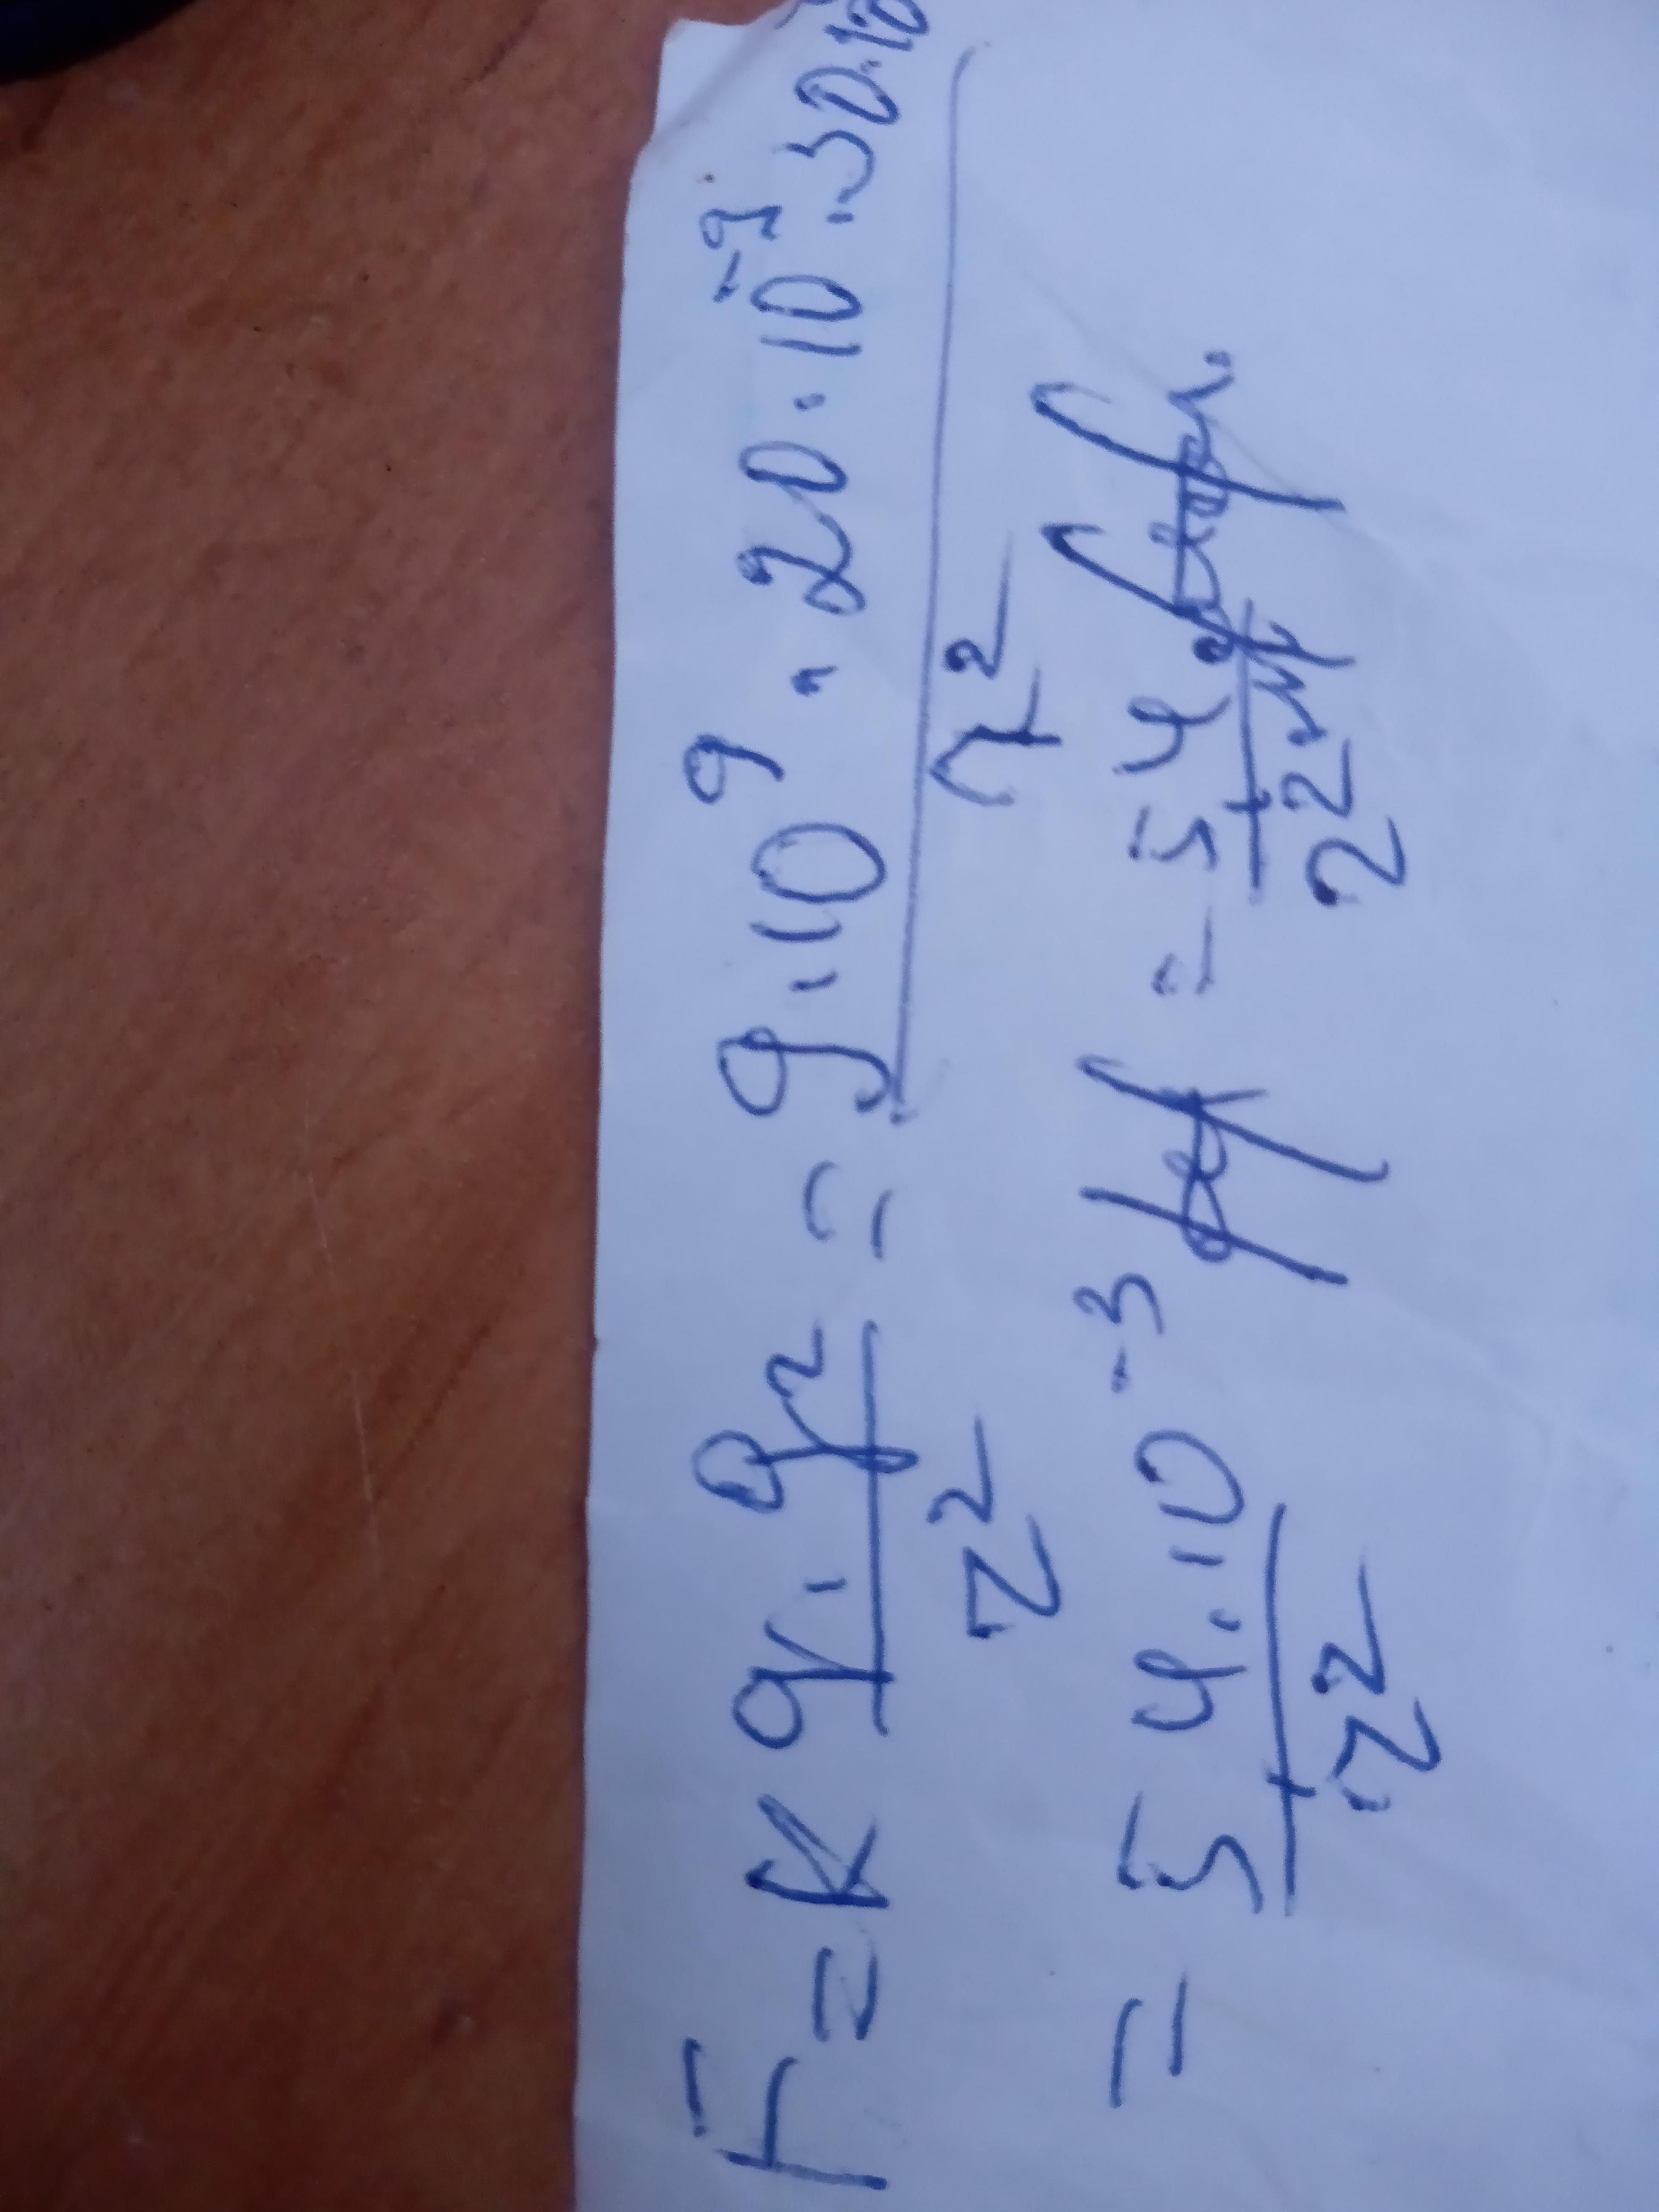 F = k q · q2 / r² = 9·10⁹ · 20·10⁻⁹ · 30·10 / r²
= 54·10⁻³ / r² = 54 / r²